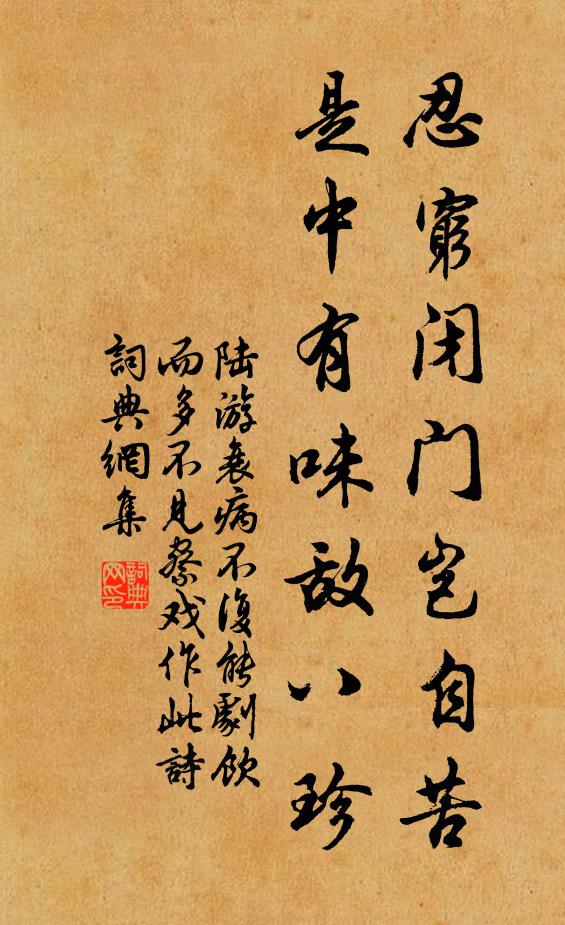 忍窮闭门岂自苦
是中有味敌八珍
陆游衰病不復能劇飲
而多不見察戏作此詩
詞典網集
詞典网印